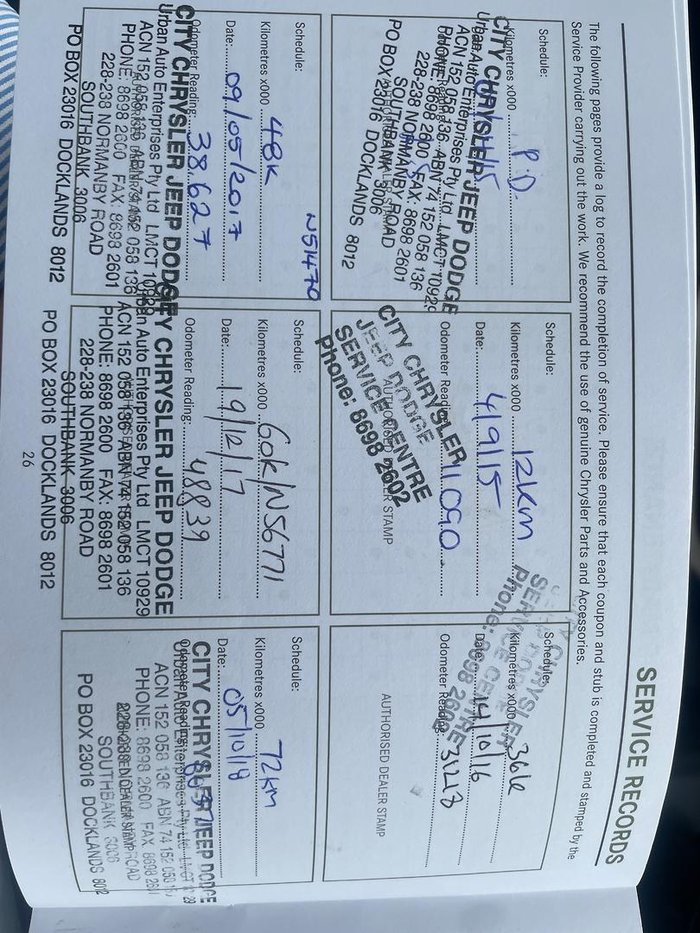 SERVICE RECORDS
The following pages provide a log to record the completion of service. Please ensure that each coupon and stub is completed and stamped by the
Service Provider carrying out the work. We recommend the use of genuine Chrysler Parts and Accessories.
Schedule:
Kilometres x000 P.D.
CITY CHRYSLER JEEP DODGE
Urban Auto Enterprises Pty Ltd LMCT 10929
ACN 152 058 136 ABN 74 152 058 136
PHONE: 8698 2600 FAX: 8698 2601
228-238 NORMANBY ROAD
SOUTHBANK 3006
PO BOX 23016 DOCKLANDS 8012
Schedule:
Kilometres x000 12km
Date: 4/9/15
Odometer Reading: 11090
AUTHORISED DEALER STAMP
CITY CHRYSLER
JEEP DODGE
SERVICE CENTRE
Phone: 8698 2602
Schedule:
Kilometres x000 36k
Date: 14/10/16
Odometer Reading: 31213
CHRYSLER
SERVICE CENTRE
Phone: 8698 2602
AUTHORISED DEALER STAMP
Schedule: N51470
Kilometres x000 48K
Date: 09/05/2017
Odometer Reading: 38627
CITY CHRYSLER JEEP DODGE
Urban Auto Enterprises Pty Ltd LMCT 10929
ACN 152 058 136 ABN 74 152 058 136
PHONE: 8698 2600 FAX: 8698 2601
228-238 NORMANBY ROAD
SOUTHBANK 3006
PO BOX 23016 DOCKLANDS 8012
Schedule:
Kilometres x000 60K/N56771
Date: 19/12/17
Odometer Reading: 48839
CITY CHRYSLER JEEP DODGE
Urban Auto Enterprises Pty Ltd LMCT 10929
ACN 152 058 136 ABN 74 152 058 136
PHONE: 8698 2600 FAX: 8698 2601
228-238 NORMANBY ROAD
SOUTHBANK 3006
PO BOX 23016 DOCKLANDS 8012
Schedule:
Kilometres x000 72km
Date: 05/10/18
Odometer Reading:
CITY CHRYSLER JEEP DODGE
Urban Auto Enterprises Pty Ltd LMCT 10929
ACN 152 058 136 ABN 74 152 058 136
PHONE: 8698 2600 FAX 8698 2601
228-238 NORMANBY ROAD
SOUTHBANK 3006
PO BOX 23016 DOCKLANDS 8012
26